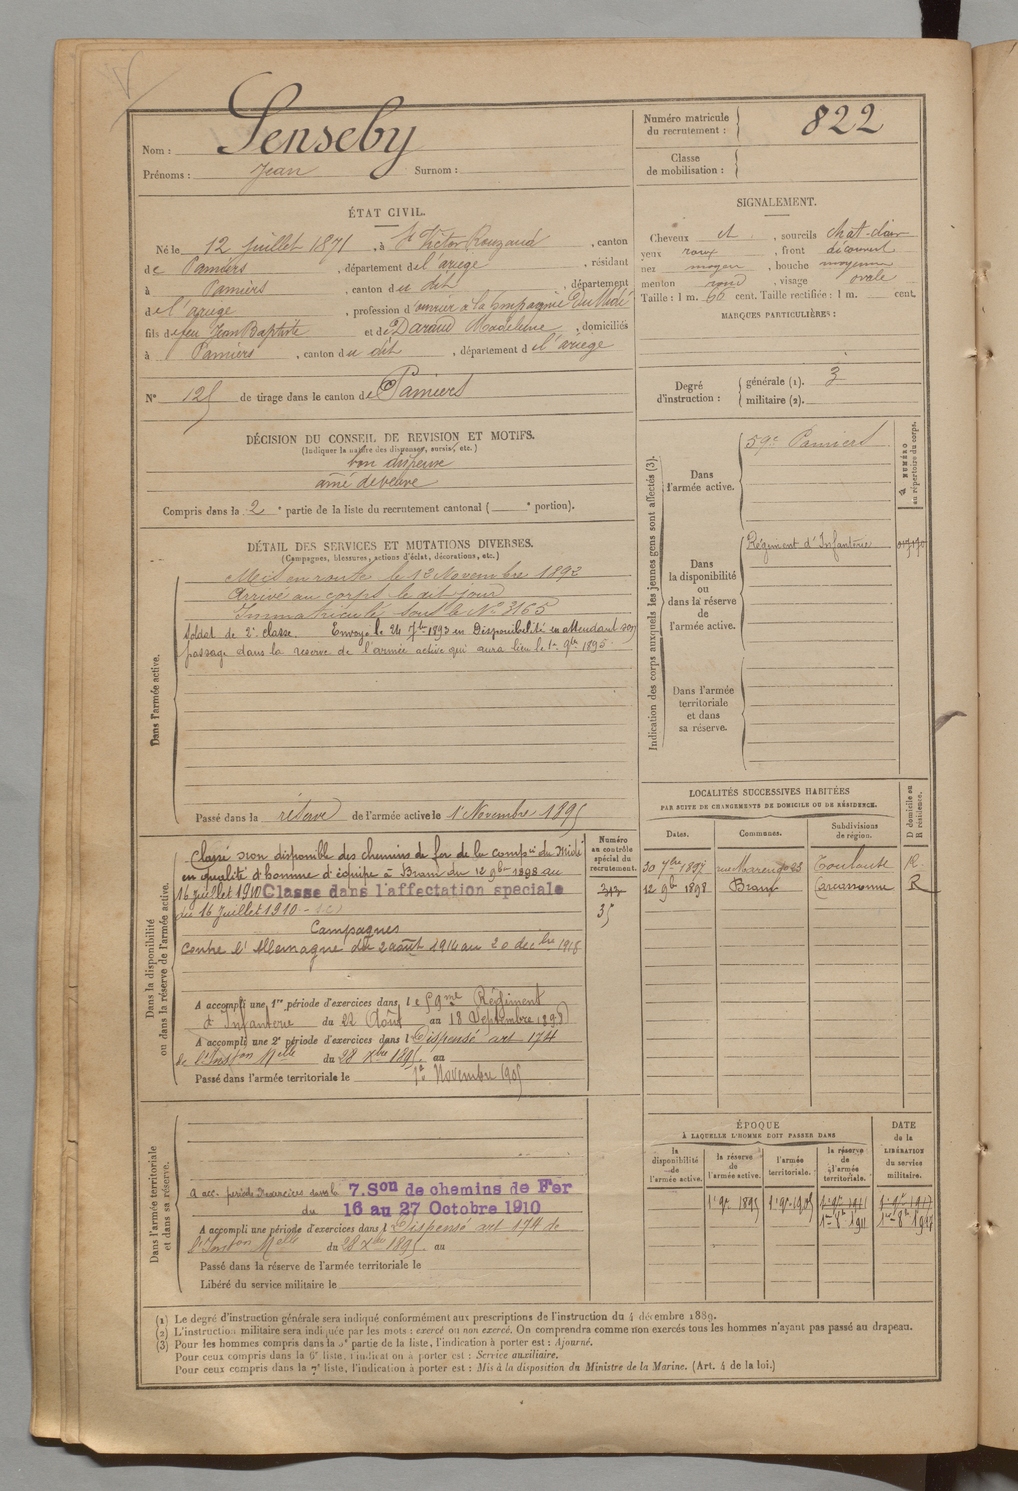 Nom : Senseby
Prénoms : Jean Surnom :
Numéro matricule du recrutement : 822
Classe de mobilisation :
ÉTAT CIVIL.
Né le 12 juillet 1871, à St Victor Rouzaud, canton
de Pamiers, département de l'ariege, résidant
à Pamiers, canton du dit, département
de l'ariege, profession d'ouvrier à la Compagnie Du Midi
fils de feu Jean Baptiste et de Daraud Madeleine, domiciliés
à Pamiers, canton du dit, département de l'ariege
N° 125 de tirage dans le canton de Pamiers
SIGNALEMENT.
Cheveux ch, sourcils chat-clair
yeux roux, front découvert
nez moyen, bouche moyenne
menton rond, visage ovale
Taille : 1 m. 60 cent. Taille rectifiée : 1 m. cent.
MARQUES PARTICULIÈRES :
Degré d'instruction : générale (1). 3
militaire (2).
DÉCISION DU CONSEIL DE REVISION ET MOTIFS.
(Indiquer la nature des dispenses, sursis, etc.)
bon dispensé
ainé de veuve
Compris dans la 2e partie de la liste du recrutement cantonal ( e portion).
DÉTAIL DES SERVICES ET MUTATIONS DIVERSES.
(Campagnes, blessures, actions d'éclat, décorations, etc.)
Dans l'armée active.
Mis en route le 12 Novembre 1892
Arrivé au corps le dit jour
Immatriculé sous le No 3165
Soldat de 2e classe. Envoyé le 24 7bre 1893 en Disponibilité en attendant son
passage dans la reserve de l'armée active qui aura lieu le 1er 9bre 1895.
Passé dans la réserve de l'armée active le 1er Novembre 1895
Indication des corps auxquels les jeunes gens sont affectés (3).
NUMÉRO au répertoire du corps.
Dans l'armée active.
59e Pamiers
Dans la disponibilité ou dans la réserve de l'armée active.
Régiment d'Infanterie
Dans l'armée territoriale et dans sa réserve.
LOCALITÉS SUCCESSIVES HABITÉES
PAR SUITE DE CHANGEMENTS DE DOMICILE OU DE RÉSIDENCE.
Dates. Communes. Subdivisions de région. D domicile ou R résidence.
30 7bre 1897 rue Marengo 23 Toulouse R
12 9bre 1898 Bram Carcassonne R
Dans la disponibilité ou dans la réserve de l'armée active.
Numéro au contrôle spécial du recrutement.
313
35
Classé non disponible des chemins de fer de la Compie du Midi
en qualité d'homme d'équipe à Bram du 12 9bre 1898 au
16 juillet 1910 Classe dans l'affectation speciale
du 16 juillet 1910
Campagnes
Contre l'Allemagne du 2 août 1914 au 20 décbre 1918
A accompli une 1re période d'exercices dans le 59me Régiment
d'Infanterie du 22 Août au 18 Septembre 1898
A accompli une 2e période d'exercices dans l Dispensé art 174
de l'Inston Melle du 28 Xbre 1895. au
Passé dans l'armée territoriale le 1er Novembre 1905
Dans l'armée territoriale et dans sa réserve.
A acc. periode d'exercices dans la 7.Son de chemins de Fer
du 16 au 27 Octobre 1910
A accompli une période d'exercices dans l Dispensé art 174 de
l'Inston Melle du 28 Xbre 1895. au
Passé dans la réserve de l'armée territoriale le
Libéré du service militaire le
ÉPOQUE
À LAQUELLE L'HOMME DOIT PASSER DANS
la disponibilité de l'armée active. la réserve de l'armée active. l'armée territoriale. la réserve de l'armée territoriale.
DATE de la LIBÉRATION du service militaire.
1er 9bre 1895 1er 9bre 1905 1er 9bre 1911 1er 9bre 1917
1er 8bre 1911 1er 8bre 1917
(1) Le degré d'instruction générale sera indiqué conformément aux prescriptions de l'instruction du 4 décembre 1889.
(2) L'instruction militaire sera indiquée par les mots : exercé ou non exercé. On comprendra comme non exercés tous les hommes n'ayant pas passé au drapeau.
(3) Pour les hommes compris dans la 5e partie de la liste, l'indication à porter est : Ajourné.
Pour ceux compris dans la 6e liste, l'indication à porter est : Service auxiliaire.
Pour ceux compris dans la 7e liste, l'indication à porter est : Mis à la disposition du Ministre de la Marine. (Art. 4 de la loi.)